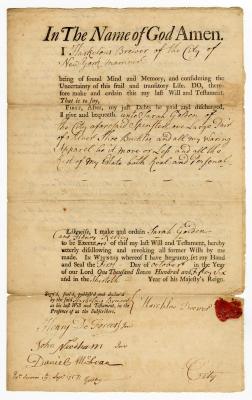 In The Name of God Amen.
I Brewer of the City of
New York
being of sound Mind and Memory, and considering the
Uncertainty of this frail and transitory Life. DO, there-
fore make and ordain this my last Will and Testament.
That is to say,
First, After, my just Debts be paid and discharged,
I give and bequeath unto Sarah Golden of
the City aforesaid Spinster one Large Pair
of Silver Shoe Buckles and all my Waring
Apparel be it more or Less and all the
Rest of my Estate both Real and Personal
Likewise, I make and ordain Sarah Golden
to be Executors of this my last Will and Testament, hereby
utterly disallowing and revoking all former Wills by me
made. In Witness whereof I have hereunto set my Hand
and Seal the Day of October in the Year
of our Lord One Thousand Seven Hundred and fifty Six
and in the Year of his Majesty's Reign.
Sign'd, seal'd, publish'd and declared
by the said
as his last Will and Testament, in the
Presence of us the Subscribers.
Brewer
Henry De Foreest
John
Daniel McLean